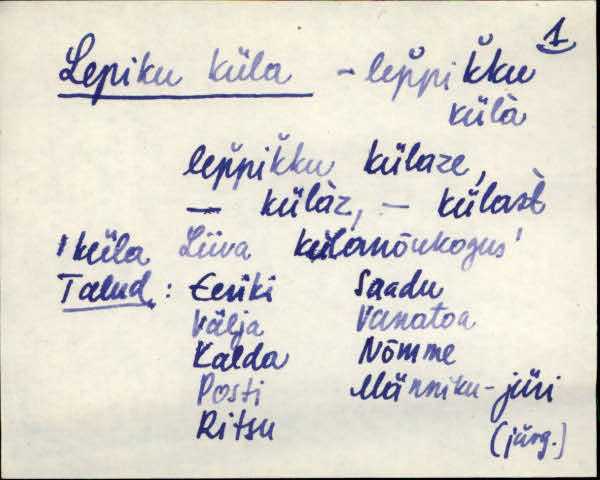 1
Lepiku küla – lep̆pik̆ku
külà
lep̆pik̆ku külaze,
— küläz, — külast̀
'küla Liiva külanõukogus'
Talud: Eeriki Saadu
Välja Vanatoa
Kalda Nõmme
Posti Männiku-jüri
Ritsu (jürg.)